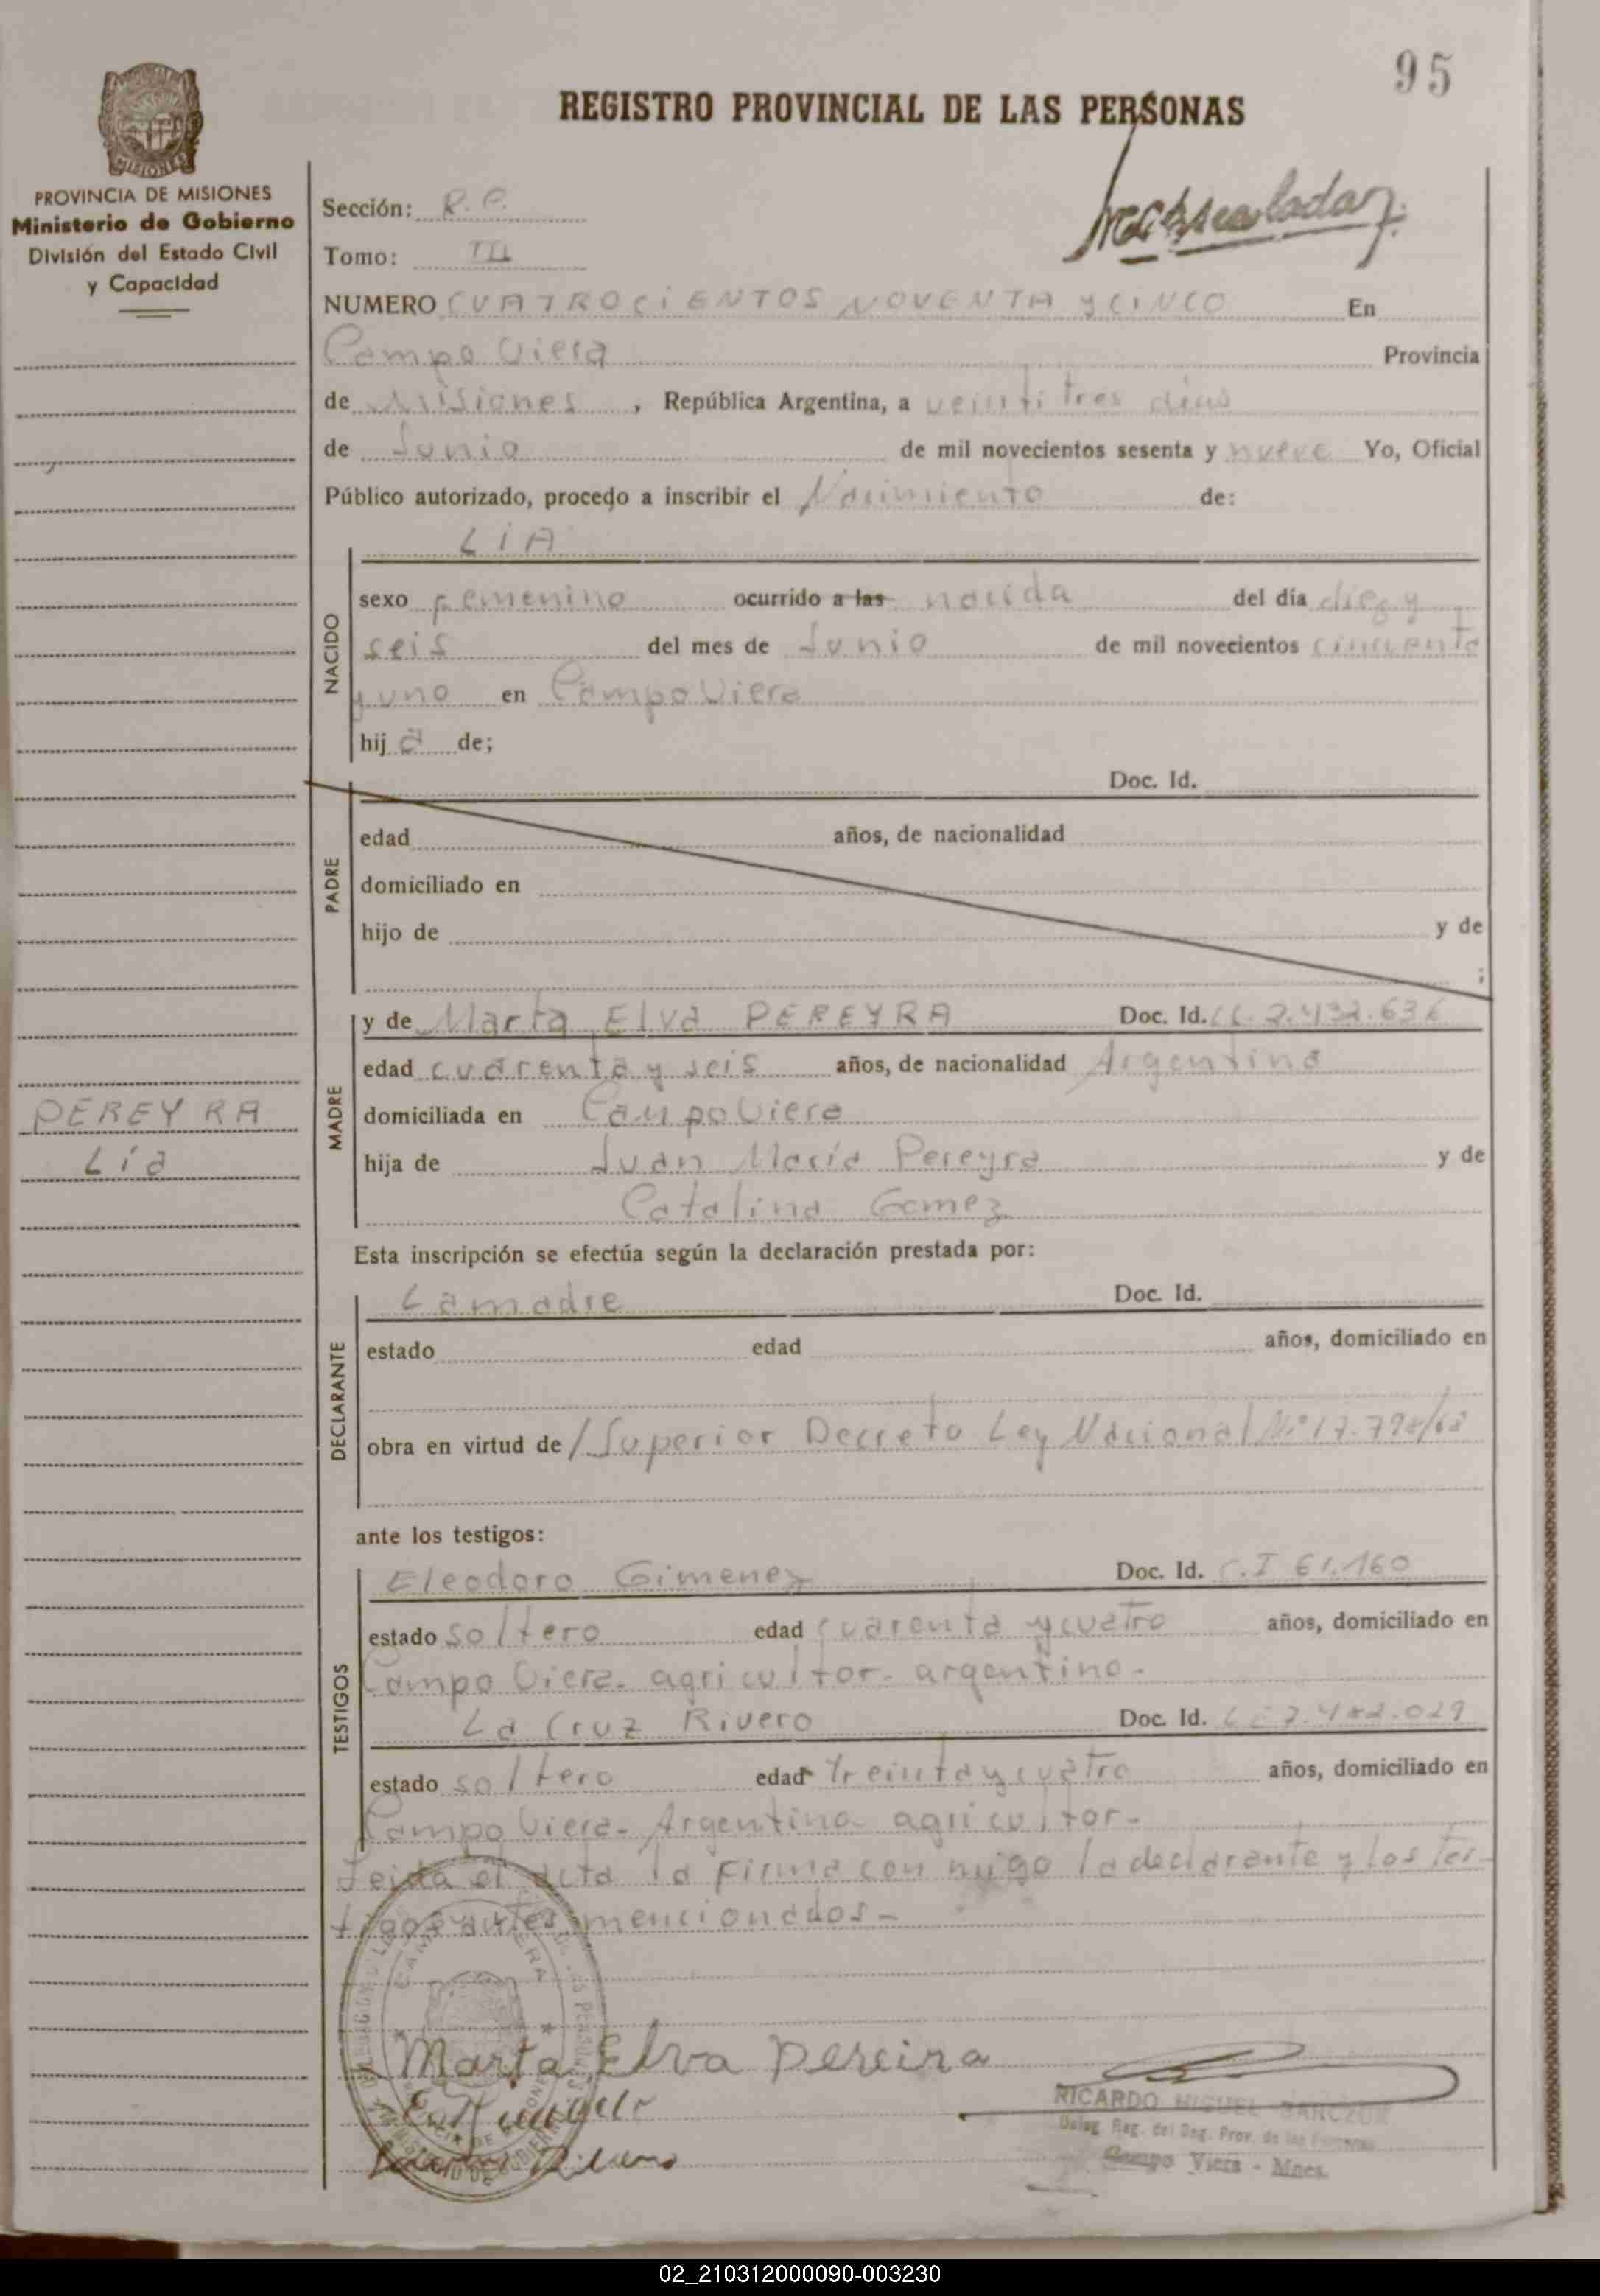 95
REGISTRO PROVINCIAL DE LAS PERSONAS
MISIONES
PROVINCIA DE MISIONES
Ministerio de Gobierno
División del Estado Civil
y Capacidad
Sección:
Tomo: III
NUMERO CUATROCIENTOS NOVENTA y CINCO En
Campo Viera Provincia
de Misiones, República Argentina, a veintitres dias
de Junio de mil novecientos sesenta y nueve Yo, Oficial
Público autorizado, procedo a inscribir el Nacimiento de:
NACIDO
LIA
sexo Femenino ocurrido a las nacida del día diez y
seis del mes de Junio de mil novecientos cincuenta
y uno en Campo Viera
hija de;
PADRE
Doc. Id.
edad años, de nacionalidad
domiciliado en
hijo de y de
;
MADRE
y de Marta Elva PEREYRA Doc. Id.
edad cuarenta y seis años, de nacionalidad Argentina
PEREYRA
Lía
domiciliada en Campo Viera
hija de Juan María Pereyra y de
Catalina Gomez
Esta inscripción se efectúa según la declaración prestada por:
DECLARANTE
La madre Doc. Id.
estado edad años, domiciliado en
obra en virtud de / Superior Decreto Ley Nacional
ante los testigos:
TESTIGOS
Eleodoro Gimenez Doc. Id. C.I 61.160
estado soltero edad cuarenta y cuatro años, domiciliado en
Campo Viera. agricultor. argentino.
La Cruz Rivero Doc. Id.
estado soltero edad treinta y cuatro años, domiciliado en
Campo Viera. Argentino agricultor.
Leida el acta la firma con migo la declarante y los tes-
tigos antes mencionados-
Marta Elva Pereira
RICARDO MIGUEL
Deleg. Reg. del Reg. Prov. de las Personas
Campo Viera - Mnes.
02_210312000090-003230